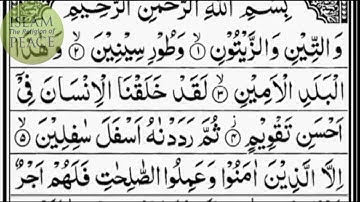 ISLAM
The Religion of
PEACE
بِسْمِ اللّٰهِ الرَّحْمٰنِ الرَّحِيْمِ
وَالتِّيْنِ وَالزَّيْتُوْنِ ۝۱ وَطُوْرِ سِيْنِيْنَ ۝۲ وَهٰذَا
الْبَلَدِ الْاَمِيْنِ ۝۳ لَقَدْ خَلَقْنَا الْاِنْسَانَ فِيْٓ
اَحْسَنِ تَقْوِيْمٍ ۝۴ ثُمَّ رَدَدْنٰهُ اَسْفَلَ سٰفِلِيْنَ ۝۵
اِلَّا الَّذِيْنَ اٰمَنُوْا وَعَمِلُوا الصّٰلِحٰتِ فَلَهُمْ اَجْرٌ